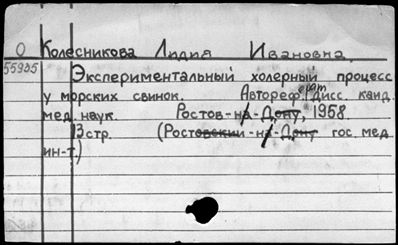 О Колесникова Лидия Ивановна
55935 Экспериментальный холерный процесс
у морских свинок. Автореферат дисс. канд.
мед. наук. Ростов-на-Дону, 1958.
13 стр. (Ростовский н/Д гос. мед.
ин-т)